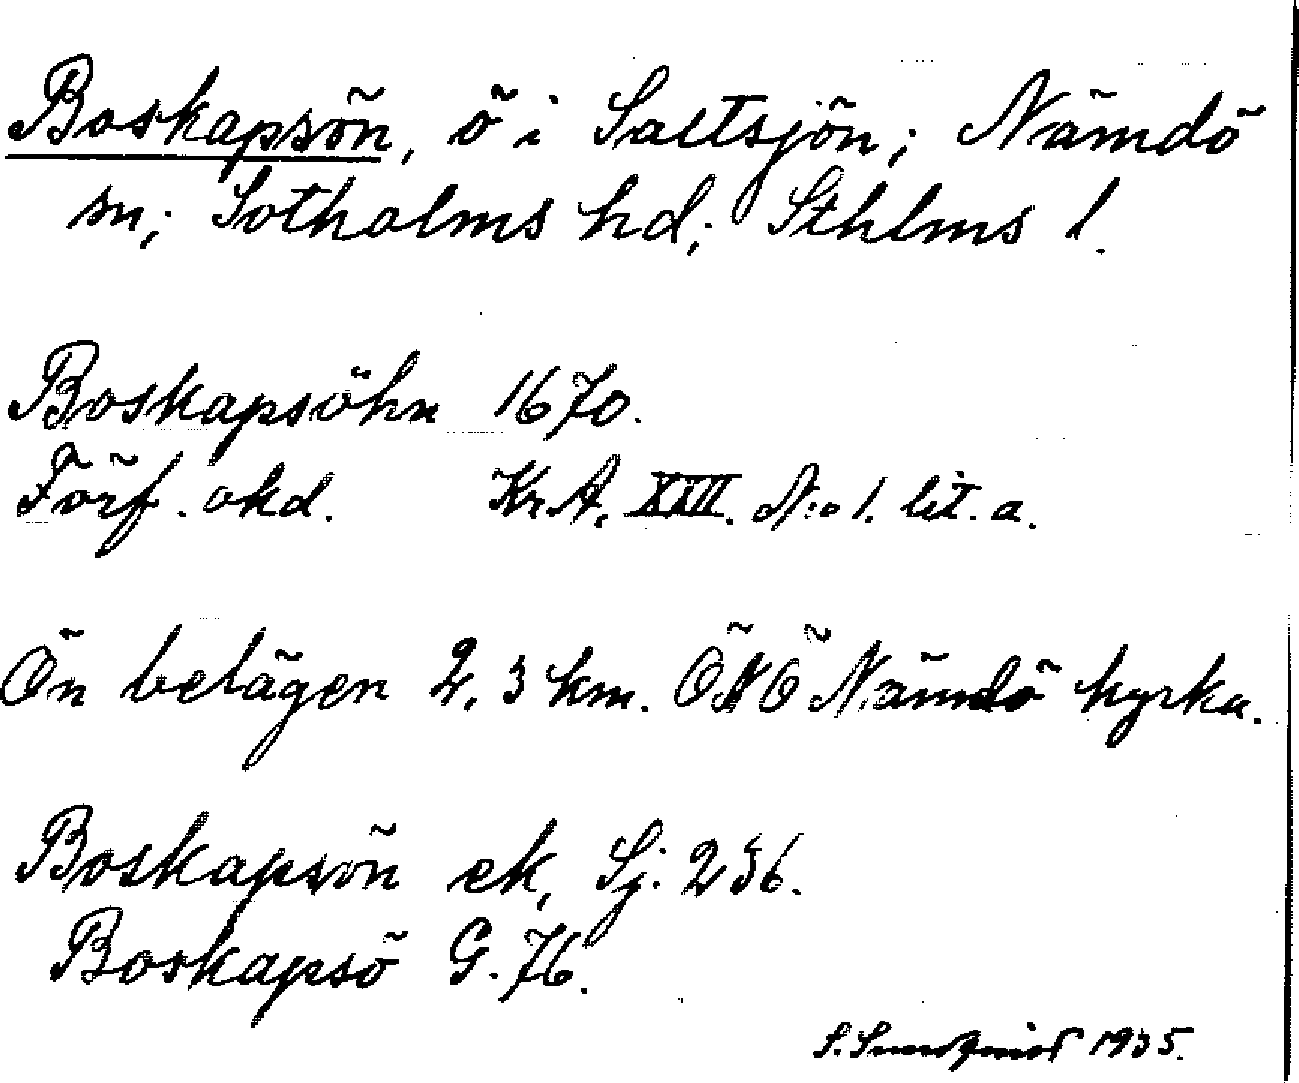 Boskapsön, ö i Saltsjön; Nämdö
sn; Sotholms hd; Sthlms l.
Boskapsöhn 1670.
Förf. okd. Kr.A. XIII. N:o 1. lit. a.
Ön belägen 2,3 km. ÖNÖ Nämdö kyrka.
Boskapsön ek, Sj. 236.
Boskapsö G. 76.
S. Sundqvist 1935.